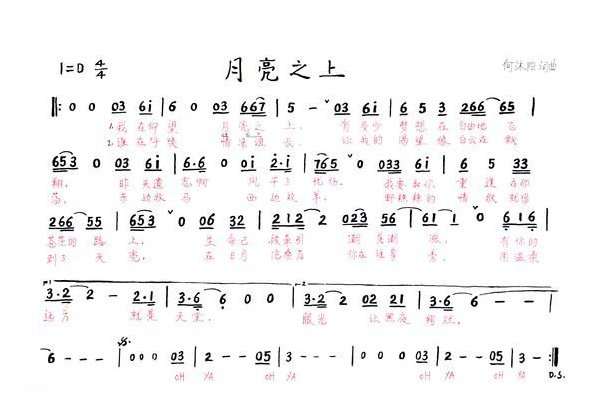 1=D 4/4 月亮之上 何沐阳词曲
‖: 0 0 03 6i | 6 0 03 667 | 5 - ˇ03 6i | 6 5 3 266 65 |
1.我在仰望 月亮之上, 有多少 梦想在 自由地 飞
2.谁在呼唤 情深谁长, 让我的 渴望像 白云在 飘
653 0 03 6i | 6·6 0 0i 2·i | 765 ˇ 0 3 3i | 6 5 33
翔, 昨天遗 忘啊 风干了 忧伤, 我要和你 重逢在那
荡, 东边牧马 西边放羊, 野辣辣的 情歌就唱
266 55 | 653 ˇ 0 06 32 | 212 2 023 56 | 6i i ˇ 0 616 |
苍茫的 路上, 生命已 被牵引 潮落潮 涨, 有你的
到了 天亮, 在日月 沧桑后 你在谁身 旁, 用温柔
1 3·2 2 - 2·1 | 3·6 6 0 0 | 2 3·2 2 02 21 | 3·6 6 - - |
远方 就是 天堂, 眼光 让黑夜 绚烂,
6 - - - | 0 0 0 03 | 2 - - 05 | 3 - - - | 0 0 0 03 | 2 - - 05 | 3 - - - :‖
OH YA OH YA OH YA OH YA D.S.